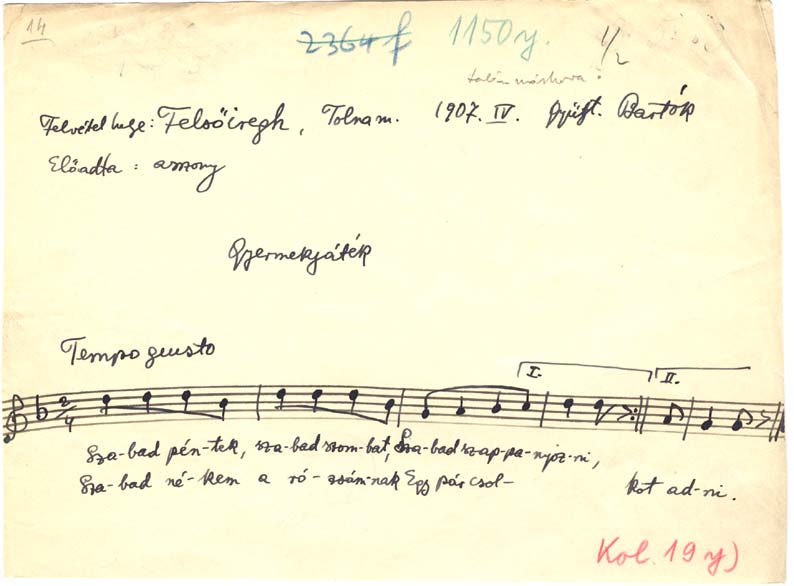 14
2364 f 1150y. 1/2
talán máshova?
Felvétel helye: Felsőiregh, Tolnam. 1907. IV. Gyűjt. Bartók
Előadta: asszony
Gyermekjáték
Tempo giusto
I. II.
2/4
Sza-bad pén-tek, sza-bad szom-bat, Sza-bad szap-pa-nyoz-ni,
Sza-bad né-kem a ró-zsám-nak Egy pár csol- kot ad-ni.
Kol. 19 y)